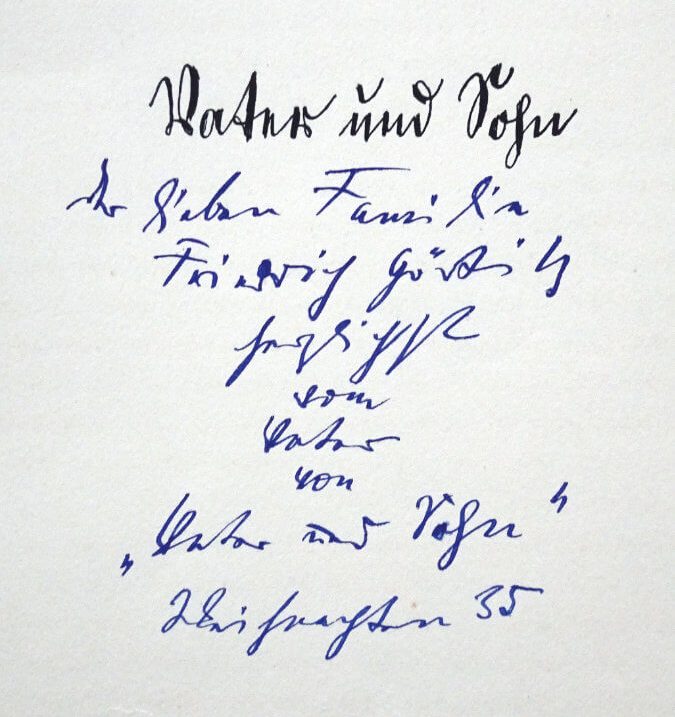 Vater und Sohn
der lieben Familie
Friedrich Görtitz
herzlichst
vom
Vater
von
„Vater und Sohn“
Weihnachten 35